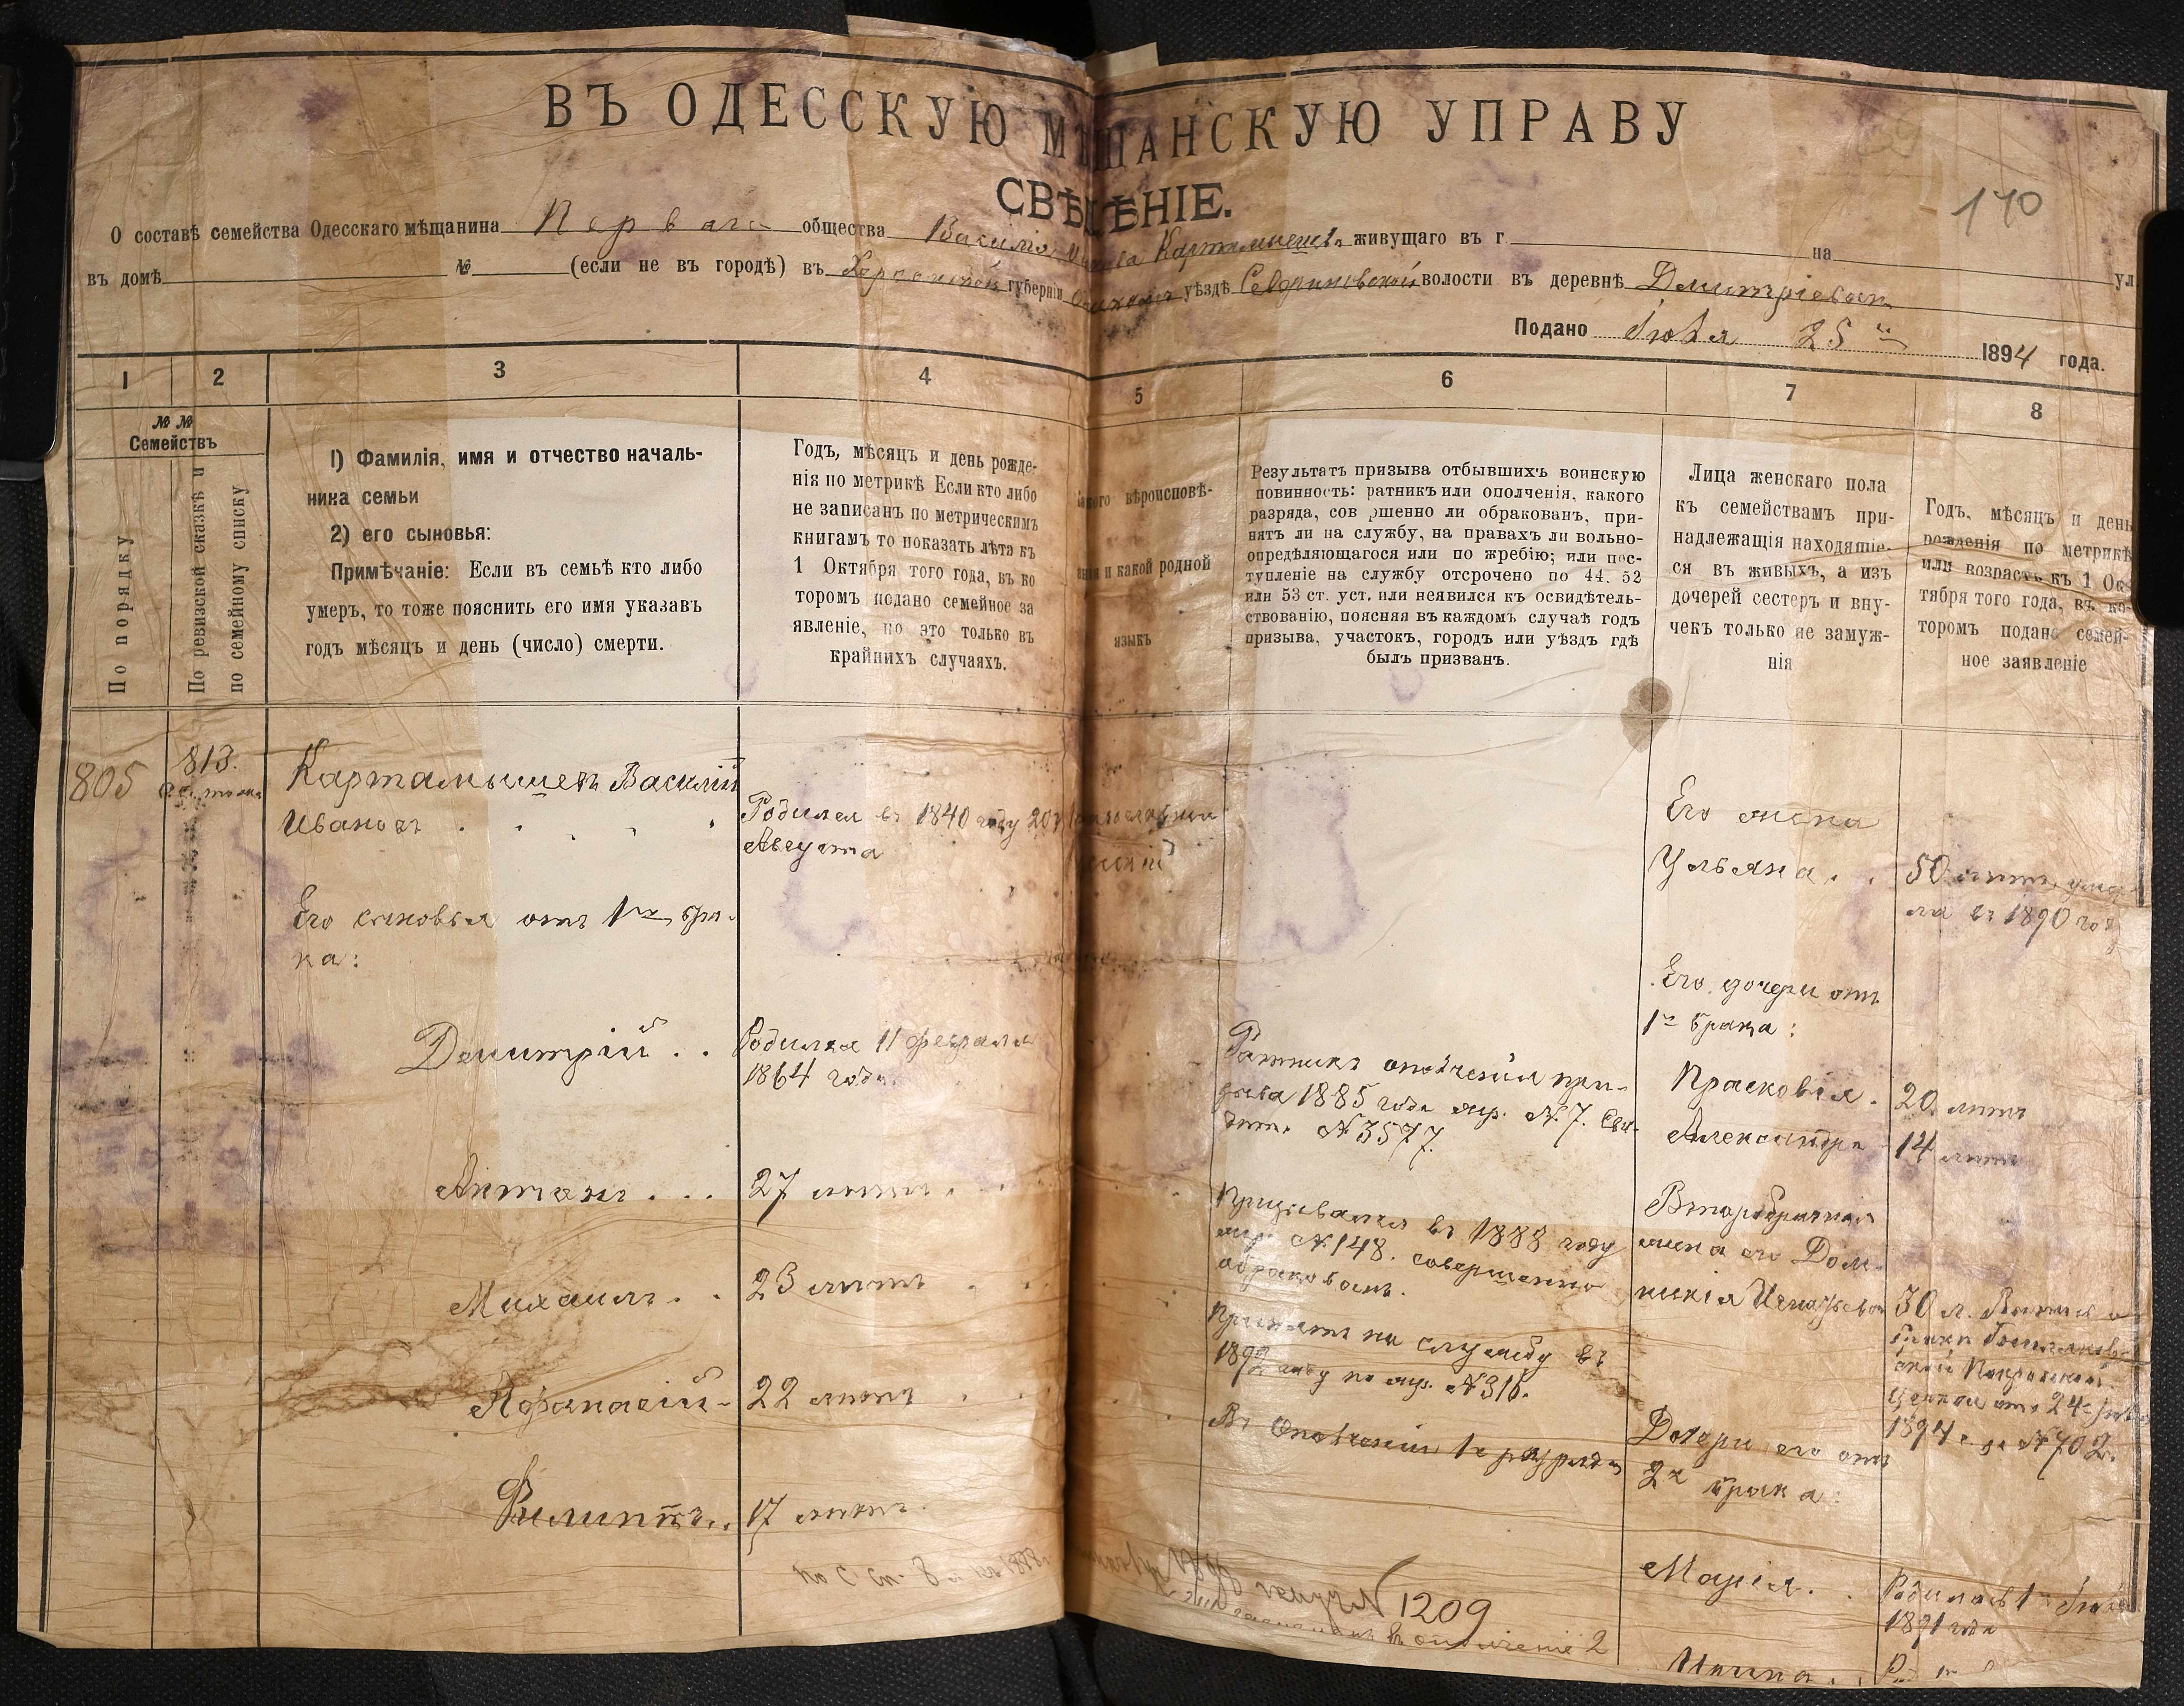 ВЪ ОДЕССКУЮ МѢЩАНСКУЮ УПРАВУ
СВѢДѢНІЕ.
170
О составѣ семейства Одесскаго мѣщанина Перваго общества Василія Картамышева живущаго въ г на
въ домѣ № (если не въ городѣ) въ Херсонской губерніи уѣздѣ Севериновской волости въ деревнѣ Дмитріевкѣ ул
Подано Іюля 25 1894 года.
1 2 3 4 5 6 7 8
№ № Семействъ
По порядку
По ревизской сказкѣ и
по семейному списку
1) Фамилія, имя и отчество началь-
ника семьи
2) его сыновья:
Примѣчаніе: Если въ семьѣ кто либо
умеръ, то тоже пояснить его имя указавъ
годъ мѣсяцъ и день (число) смерти.
Годъ, мѣсяцъ и день рожде-
нія по метрикѣ Если кто либо
не записанъ по метрическимъ
книгамъ то показать лѣта къ
1 Октября того года, въ ко
торомъ подано семейное за
явленіе, но это только въ
крайнихъ случаяхъ.
вѣроисповѣ-
и какой родной
языкъ
Результатъ призыва отбывшихъ воинскую
повинность: ратникъ или ополченія, какого
разряда, сов ршенно ли обракован, при-
нятъ ли на службу, на правахъ ли вольно-
опредѣляющагося или по жребію; или пос-
тупленіе на службу отсрочено по 44, 52
или 53 ст. уст. или неявился къ освидѣтель-
ствованію, поясняя въ каждомъ случаѣ годъ
призыва, участокъ, городъ или уѣздъ гдѣ
былъ призванъ.
Лица женскаго пола
къ семействамъ при-
надлежащія находящіе-
ся въ живыхъ, а изъ
дочерей сестеръ и вну-
чекъ только не замуж-
нія
Годъ, мѣсяцъ и день
рожденія по метрикѣ
или возрастъ къ 1 Ок-
тября того года, въ ко-
торомъ подано семей-
ное заявленіе
805
813.
Картамышевъ Василій
Ивановъ
Родился въ 1840 году 20
Августа
Его жена
Ульяна
50 лѣтъ, умер
ла въ 1890 году
Его сыновья отъ 1го бра-
ка:
Его дочери отъ
1го брака:
Димитрій
Родился 11 февраля
1864 года
Ратникъ ополченія при-
зыва 1885 года жер. № 7. Сви-
дѣт. № 3577.
Прасковія
20 лѣтъ
Александра
14 лѣтъ
Антонъ
27 лѣтъ
Призывался въ 1888 году
жер. № 148. совершенно
обракованъ.
Второбрачная
жена его Дом-
никія
Михаилъ
23 лѣтъ
Принятъ на службу въ
1892 году по жер. № 316.
30 л.
Афанасій
22 лѣтъ
Въ Ополченіи 1го разряда
1894 г. за № 702.
Дочери его отъ
2го брака:
Филиппъ
17 лѣтъ
Марія
Родилась 1го
1891 года
1209
въ ополченіе 2